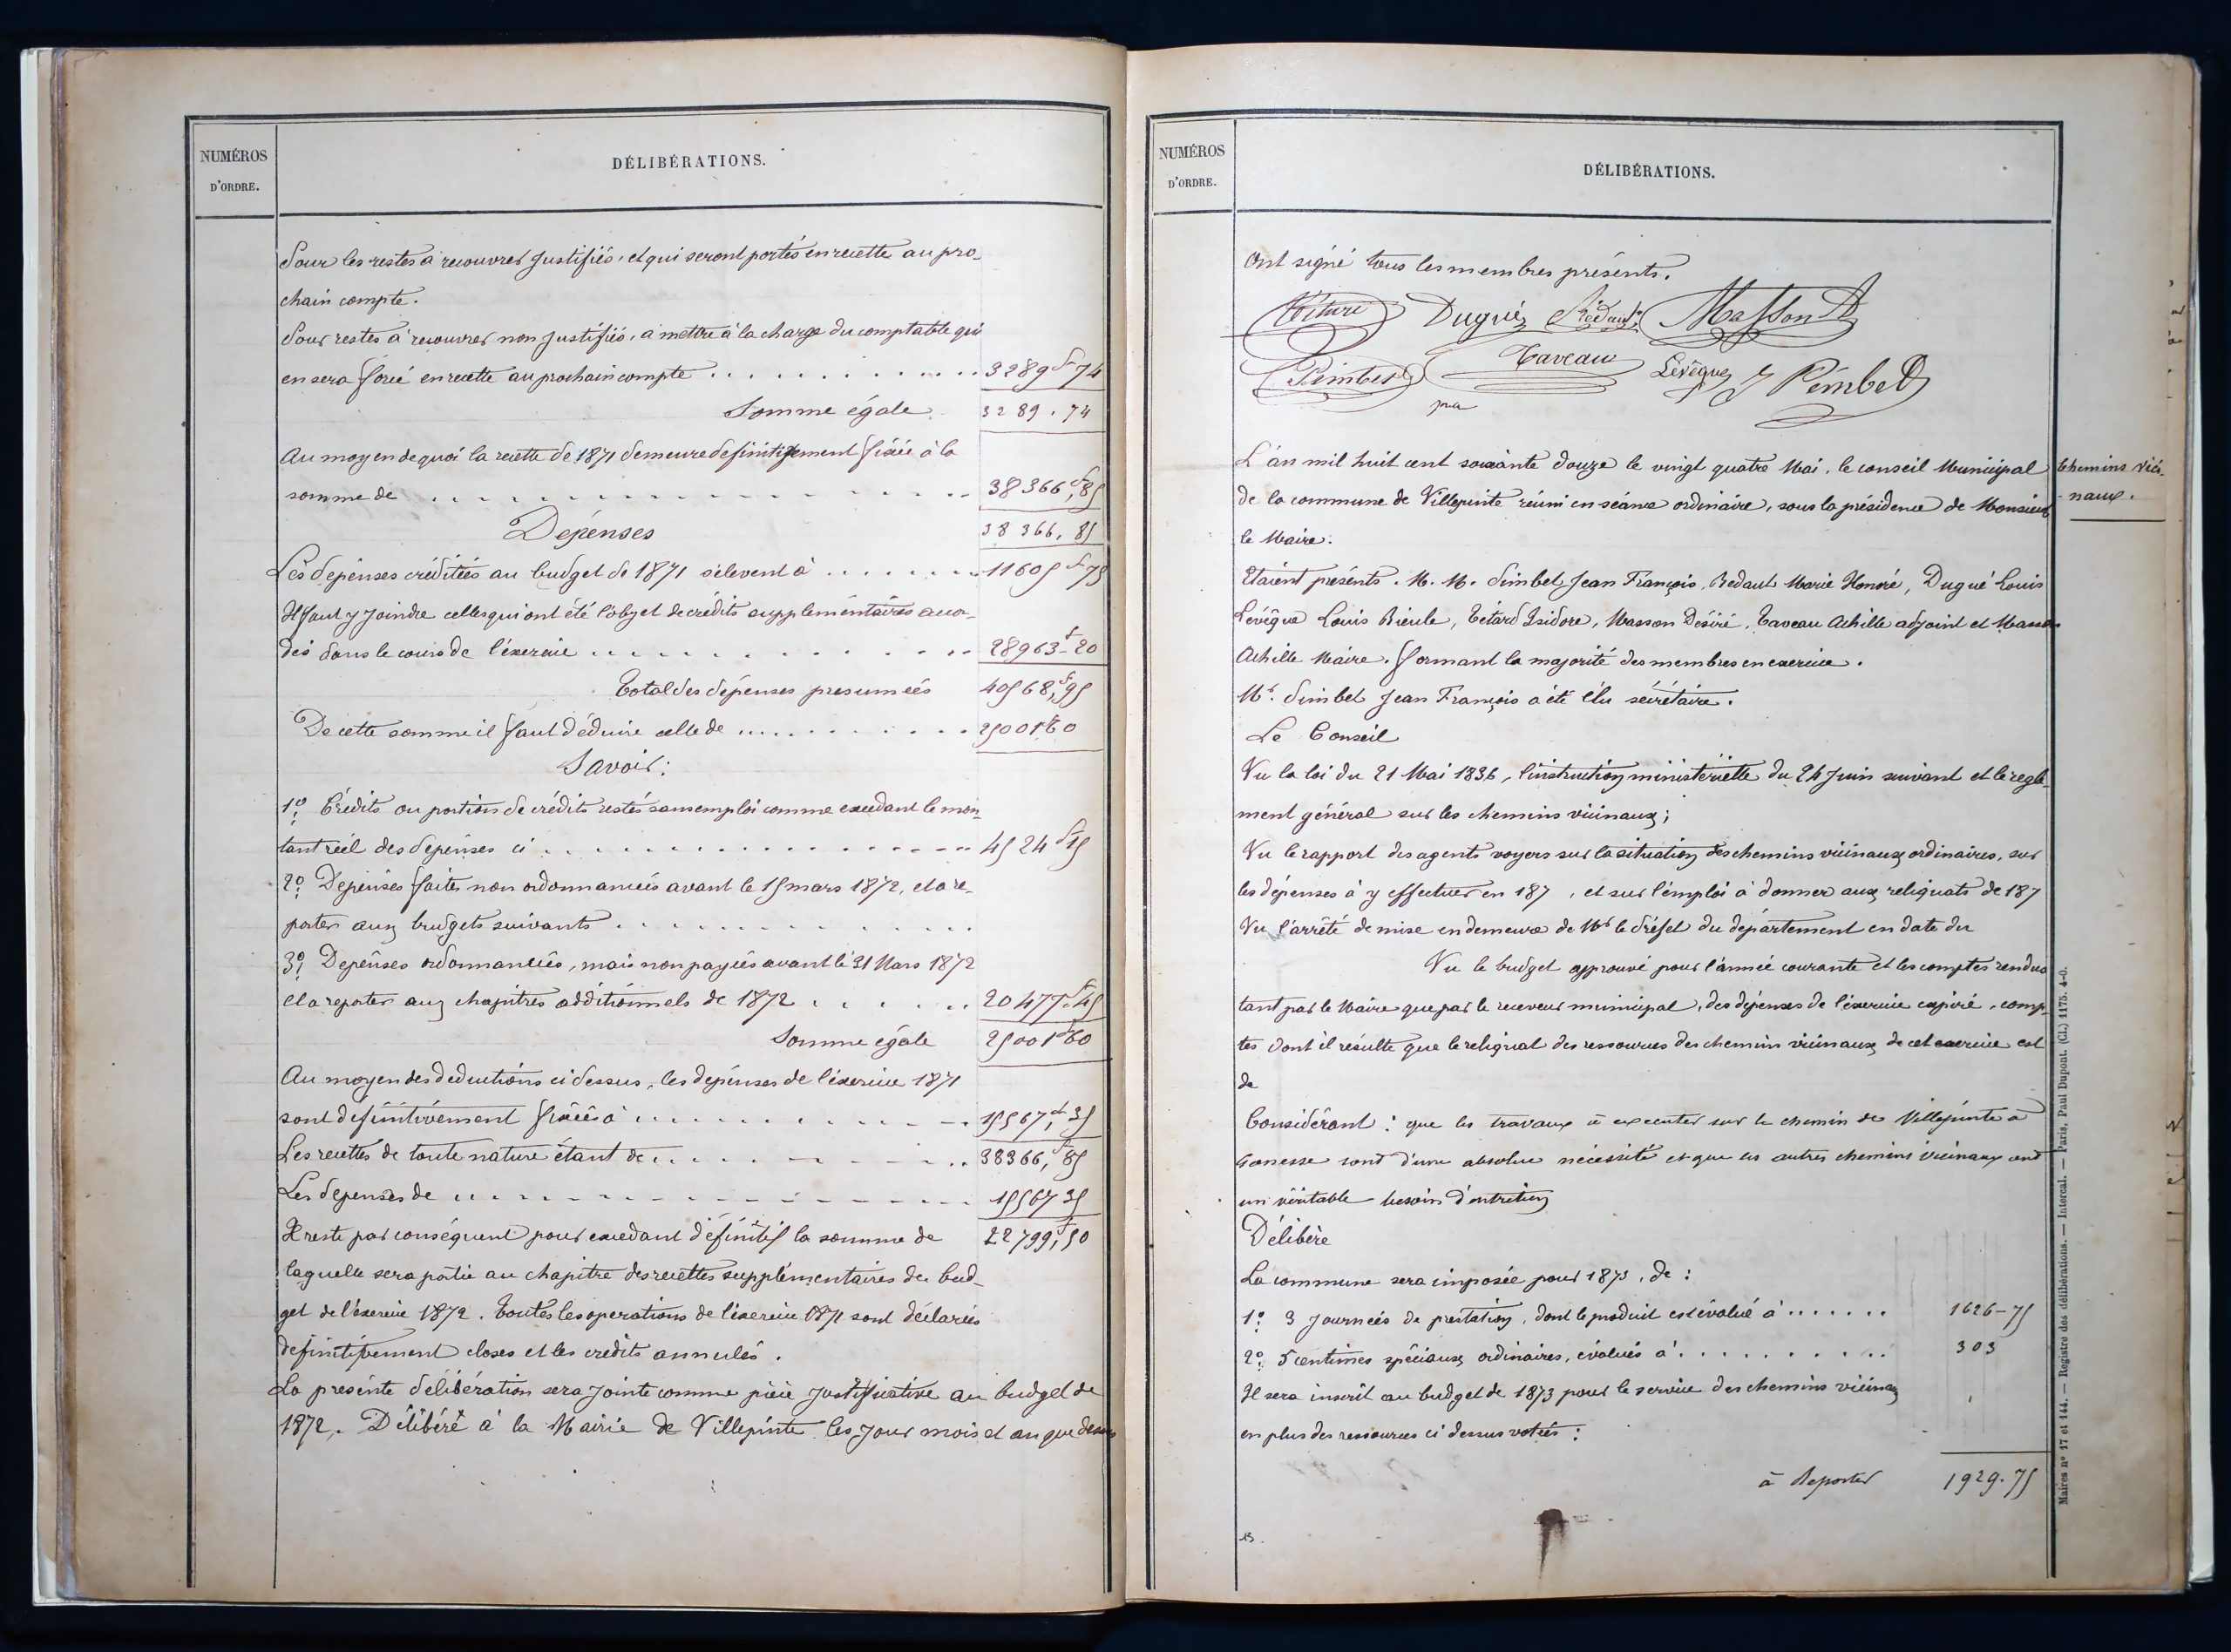 NUMÉROS
D'ORDRE.
DÉLIBÉRATIONS.
Pour les restes à recouvrer justifiés, et qui seront portés en recette au pro-
chain compte.
Pour restes à recouvrer non justifiés, à mettre à la charge du comptable qui
en sera forcé en recette au prochain compte . . . . . . . . . . . . 3289f 74
Somme égale 3289.74
Au moyen de quoi la recette de 1871 demeure définitivement fixée à la
somme de . . . . . . . . . . . . . . . . 38366f,85
Dépenses 38366,85
Les dépenses créditées au budget de 1871 s'élevent à . . . . . . . 11605f75
Il faut y joindre celles qui ont été l'objet de crédits supplémentaires accor-
dés dans le cours de l'exercice . . . . . . . . . . . . 28963f20
Total des dépenses presumées 40568f,95
De cette somme il faut déduire celle de . . . . . . . . . . . 25001f60
Savoir:
1o Crédits ou portion de crédits restés sans emploi comme excédant le mon-
tant réel des dépenses ci . . . . . . . . . . . . . . . . 4524f15
2o Dépenses faites non ordonnancées avant le 15 mars 1872, et à re-
porter aux budgets suivants . . . . . . . . . . . . .
3o Dépenses ordonnancées, mais non payées avant le 31 Mars 1872
et à reporter aux chapitres additionnels de 1872 . . . . . . . 20477f45
Somme égale 25001f60
Au moyen des deductions ci dessus, les dépenses de l'exercice 1871
sont définitivement fixées à . . . . . . . . . . . . . 15567f,35
Les recettes de toute nature étant de . . . . . . . . . . 38366,f85
Les dépenses de . . . . . . . . . . . . . . . . . . 15567 35
Il reste par conséquent pour excédant définitif la somme de 22799,f50
laquelle sera portée au chapitre des recettes supplémentaires du bud-
get de l'exercice 1872. Toutes les operations de l'exercice 1871 sont déclarées
définitivement closes et les crédits annulés.
La presente délibération sera jointe comme pièce justificative au budget de
1872. Délibéré à la Mairie de Villepinte les jour mois et an que dessus
NUMÉROS
D'ORDRE.
DÉLIBÉRATIONS.
Ont signé tous les membres présents.
Dugué Rédaut Masson D
Pimbel Taveau Levêque J Pimbel
L'an mil huit cent soixante douze le vingt quatre Mai, le conseil Municipal
de la commune de Villepinte réuni en séance ordinaire, sous la présidence de Monsieur
le Maire.
Chemins vici-
naux.
Etaient présents. M. M. Pimbel Jean François, Redaut Marie Honoré, Dugué Louis
Levêque Louis Rieule, Tétard Isidore, Masson Désiré, Taveau Achille adjoint et Masson
Achille Maire, formant la majorité des membres en exercice.
Mr. Pimbel Jean François a été élu secrétaire.
Le Conseil
Vu la loi du 21 Mai 1836, l'instruction ministerielle du 24 Juin suivant et le regle-
ment général sur les chemins vicinaux;
Vu le rapport des agents voyers sur la situation des chemins vicinaux ordinaires, sur
les dépenses à y effectuer en 187 , et sur l'emploi à donner aux reliquats de 187
Vu l'arrêté de mise en demeure de Mr le Préfet du département en date du
Vu le budget approuvé pour l'année courante et les comptes rendus
tant par le Maire que par le receveur municipal, des dépenses de l'exercice expiré, comp-
tes dont il résulte que le reliquat des ressources des chemins vicinaux de cet exercice est
de
Considérant : que les travaux à executer sur le chemin de Villepinte à
Gonesse sont d'une absolue nécessité et que les autres chemins vicinaux ont
un véritable besoin d'entretien
Délibère
La commune sera imposée pour 1873, de :
1o 3 Journées de prestation, dont le produit est évalué à . . . . . . 1626-75
2o 5 centimes spéciaux ordinaires, évalués à . . . . . . . . . . 303
Il sera inscrit au budget de 1873 pour le service des chemins vicinaux
en plus des ressources ci dessus votées :
à Reporter 1929.75
Maires no 17 et 144. — Registre des délibérations. — Intercal. — Paris, Paul Dupont. (Cl.) 1175. 4-0.